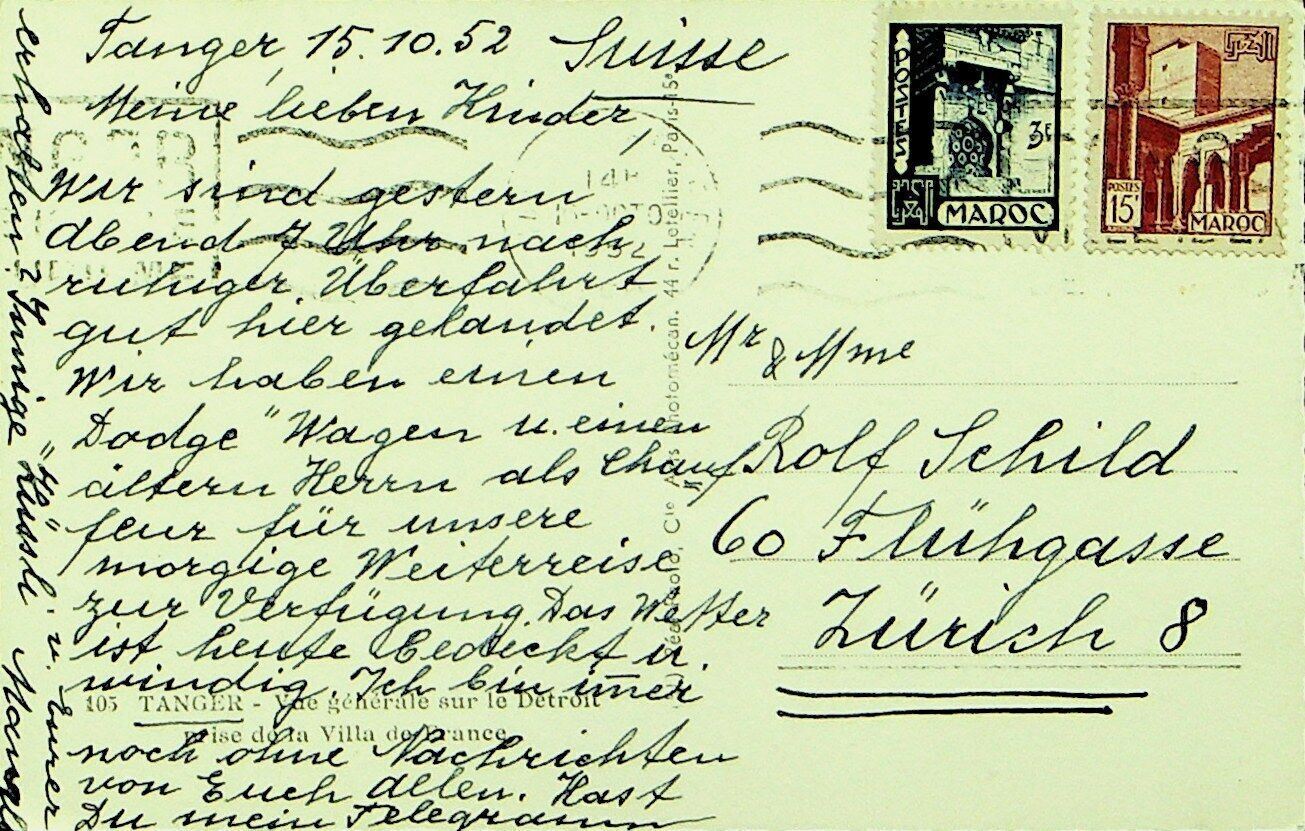 Tanger, 15.10.52
Suisse
Meine lieben Kinder,
Wir sind gestern
Abend 7 Uhr nach
ruhiger Überfahrt
gut hier gelandet.
Wir haben einen
"Dodge" Wagen u. einen
ältern Herrn als Chauf
feur für unsere
morgige Weiterreise
zur Verfügung. Das Wetter
ist heute bedeckt u.
windig. Ich bin im̅er
noch ohne Nachrichten
von Euch allen. Hast
Du mein Telegramm
erhalten? Innige "Küssli" v. Eurer
105 TANGER - Vue générale sur le Détroit
prise de la Villa de France
44 r. Letellier, Paris-15e
POSTES
3F
MAROC
POSTES
15F
MAROC
1952
Mr & Mme
Rolf Schild
60 Flühgasse
Zürich 8